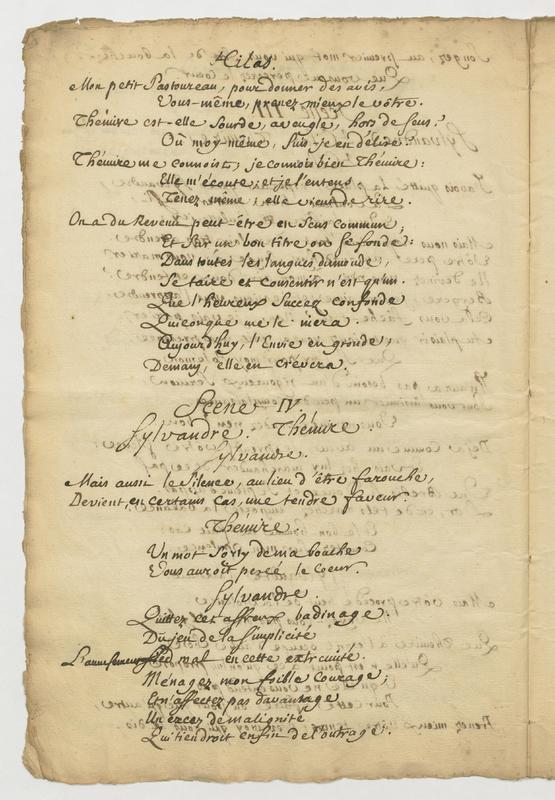 Hilas.
Mon petit Pastoureau, pour donner des avis,
Vous-même, prenez mieux le vôtre.
Thémire est-elle sourde, aveugle, hors de sens?
Où moy-même, suis-je en délire.
Thémire me connoist, je connois bien Thémire:
Elle m'écoute, et je l'entens
Tenez même, elle vient de rire.
On a du Revenu peut-être en sens commun,
Et sur un bon titre on se fonde:
Dans toutes les langues du monde,
Se taire et consentir n'est qu'un.
Que l'heureux succez confonde
Quiconque me le niera.
Aujourd'huy, l'Envie en gronde;
Demain, elle en crevera.
Scene IV.
Sylvandre. Thémire
Sylvandre.
Mais aussi le silence, au lieu d'être farouche,
Devient, en certains cas, une tendre faveur.
Thémire.
Un mot sorty de ma bouche
Vous auroit percé le coeur.
Sylvandre.
Quittez cet affreux badinage.
Du jeu de la simplicité
mal en cette extremité.
Ménagez mon foible courage;
Et n'affectez pas davantage
Un excez de malignité
Qui tiendroit enfin de l'outrage.